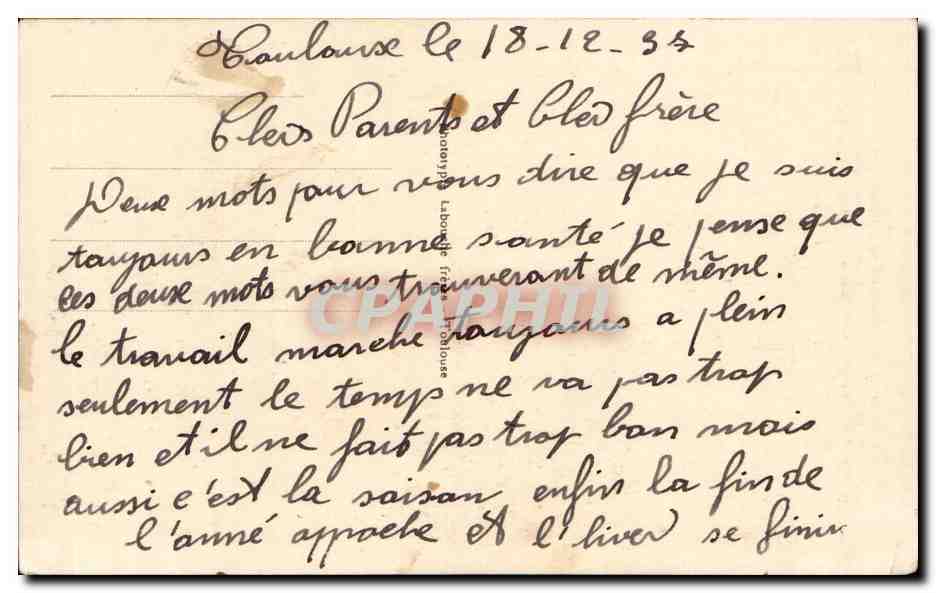 Toulouse le 18-12-
Chers Parents et Cher frère
Deux mots pour vous dire que je suis
toujours en bonne santé je pense que
ces deux mots vous trouveront de même.
le travail marche toujours a plein
seulement le temps ne va pas trop
bien et il ne fait pas trop bon mais
aussi c'est la saison enfin la fin de
l'anné approche et l'hiver se finir
Phototypie Labouche frères Toulouse
CPAPHIL